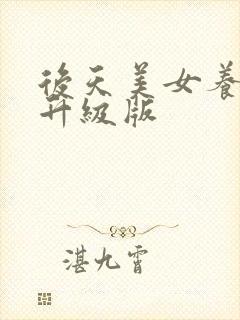 後天美女養
升級版
湛九霄